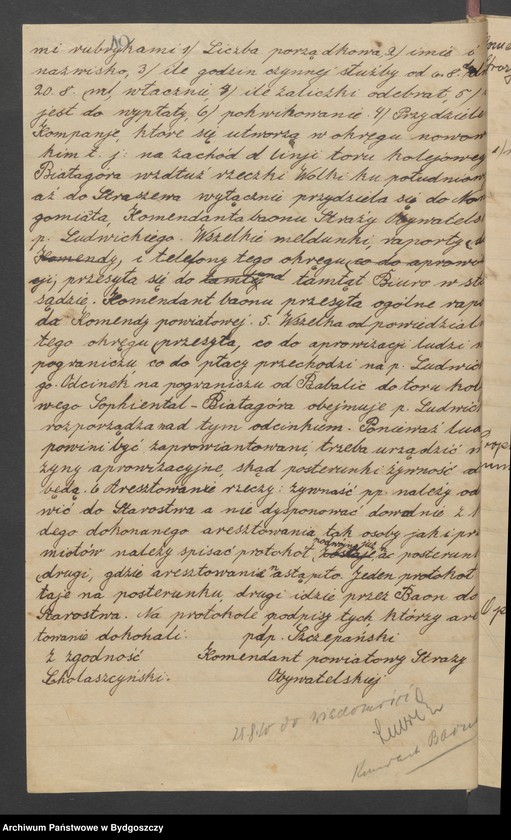 mi rubrykami 1/ Liczba porządkowa 2/ imie i
nazwisko, 3/ ile godzin czynnej służby od 6.8. do
20.8. mł włącznie, 4/ ile zaliczki odebrał, 5/
jest do wypłaty, 6/ pokwikowanie. 4/ Przydziele
Kompanje, które się utworzą w okręgu nowow
kim t. j. na zachód d linji toru kolejoweg
Białagóra wzdłuż rzeczki Wólki ku południow
aż do Straszewa wyłącznie przydziela się do No
gomiasta, Komendanta baonu Straży Obywatels
p. Ludwickiego. Wszelkie meldunki, raporty
Komendy, i telefony tego okręgu, co do aprowi
cji, przesyła się do tamtąd tamtąt Biuro w st
sądzie. Komendant baonu przesyła ogólne rap
da Komendy powiatowej. 5. Wszelka odpowiedzial
tego okręgu przesyła, co do aprowizacji ludzi n
pograniczu, co do płacy przechodzi na p. Ludwic
go. Odcinek na pograniczu od Babalic do toru kol
wego Sophiental - Białagóra obejmuje p. Ludwic
rozporządza nad tym odcinkiem. Ponieważ lud
powini być zaprowiantowani, trzeba urządzić m
zyny aprowizacyjne, skąd posterunki żywność od
będą. 6 Aresztowanie rzeczy: żywność pp. należy od
wić do Starostwa a nie dysponować dowolnie z
dego dokonanego aresztowania tak osoby jak i prz
miotów należy spisać protokół podwójnie do posterunk
drugi, gdzie aresztowanie nastąpiło. Jeden protokół
taje na posterunku, drugi idzie przez Baon do
Starostwa. Na protokole podpisy tych którzy are
towanie dokonali. pdp. Szczepański
z zgodność Komendant powiatowy Straży
Cholaszczyński. Obywatelskiej
21.8.20 do wiadomości
Komendant Baonu
Archiwum Państwowe w Bydgoszczy